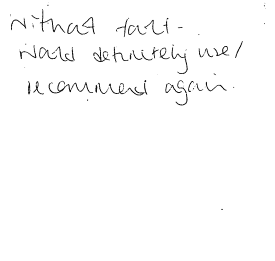 without fault -
would definitely use/
recommend again.